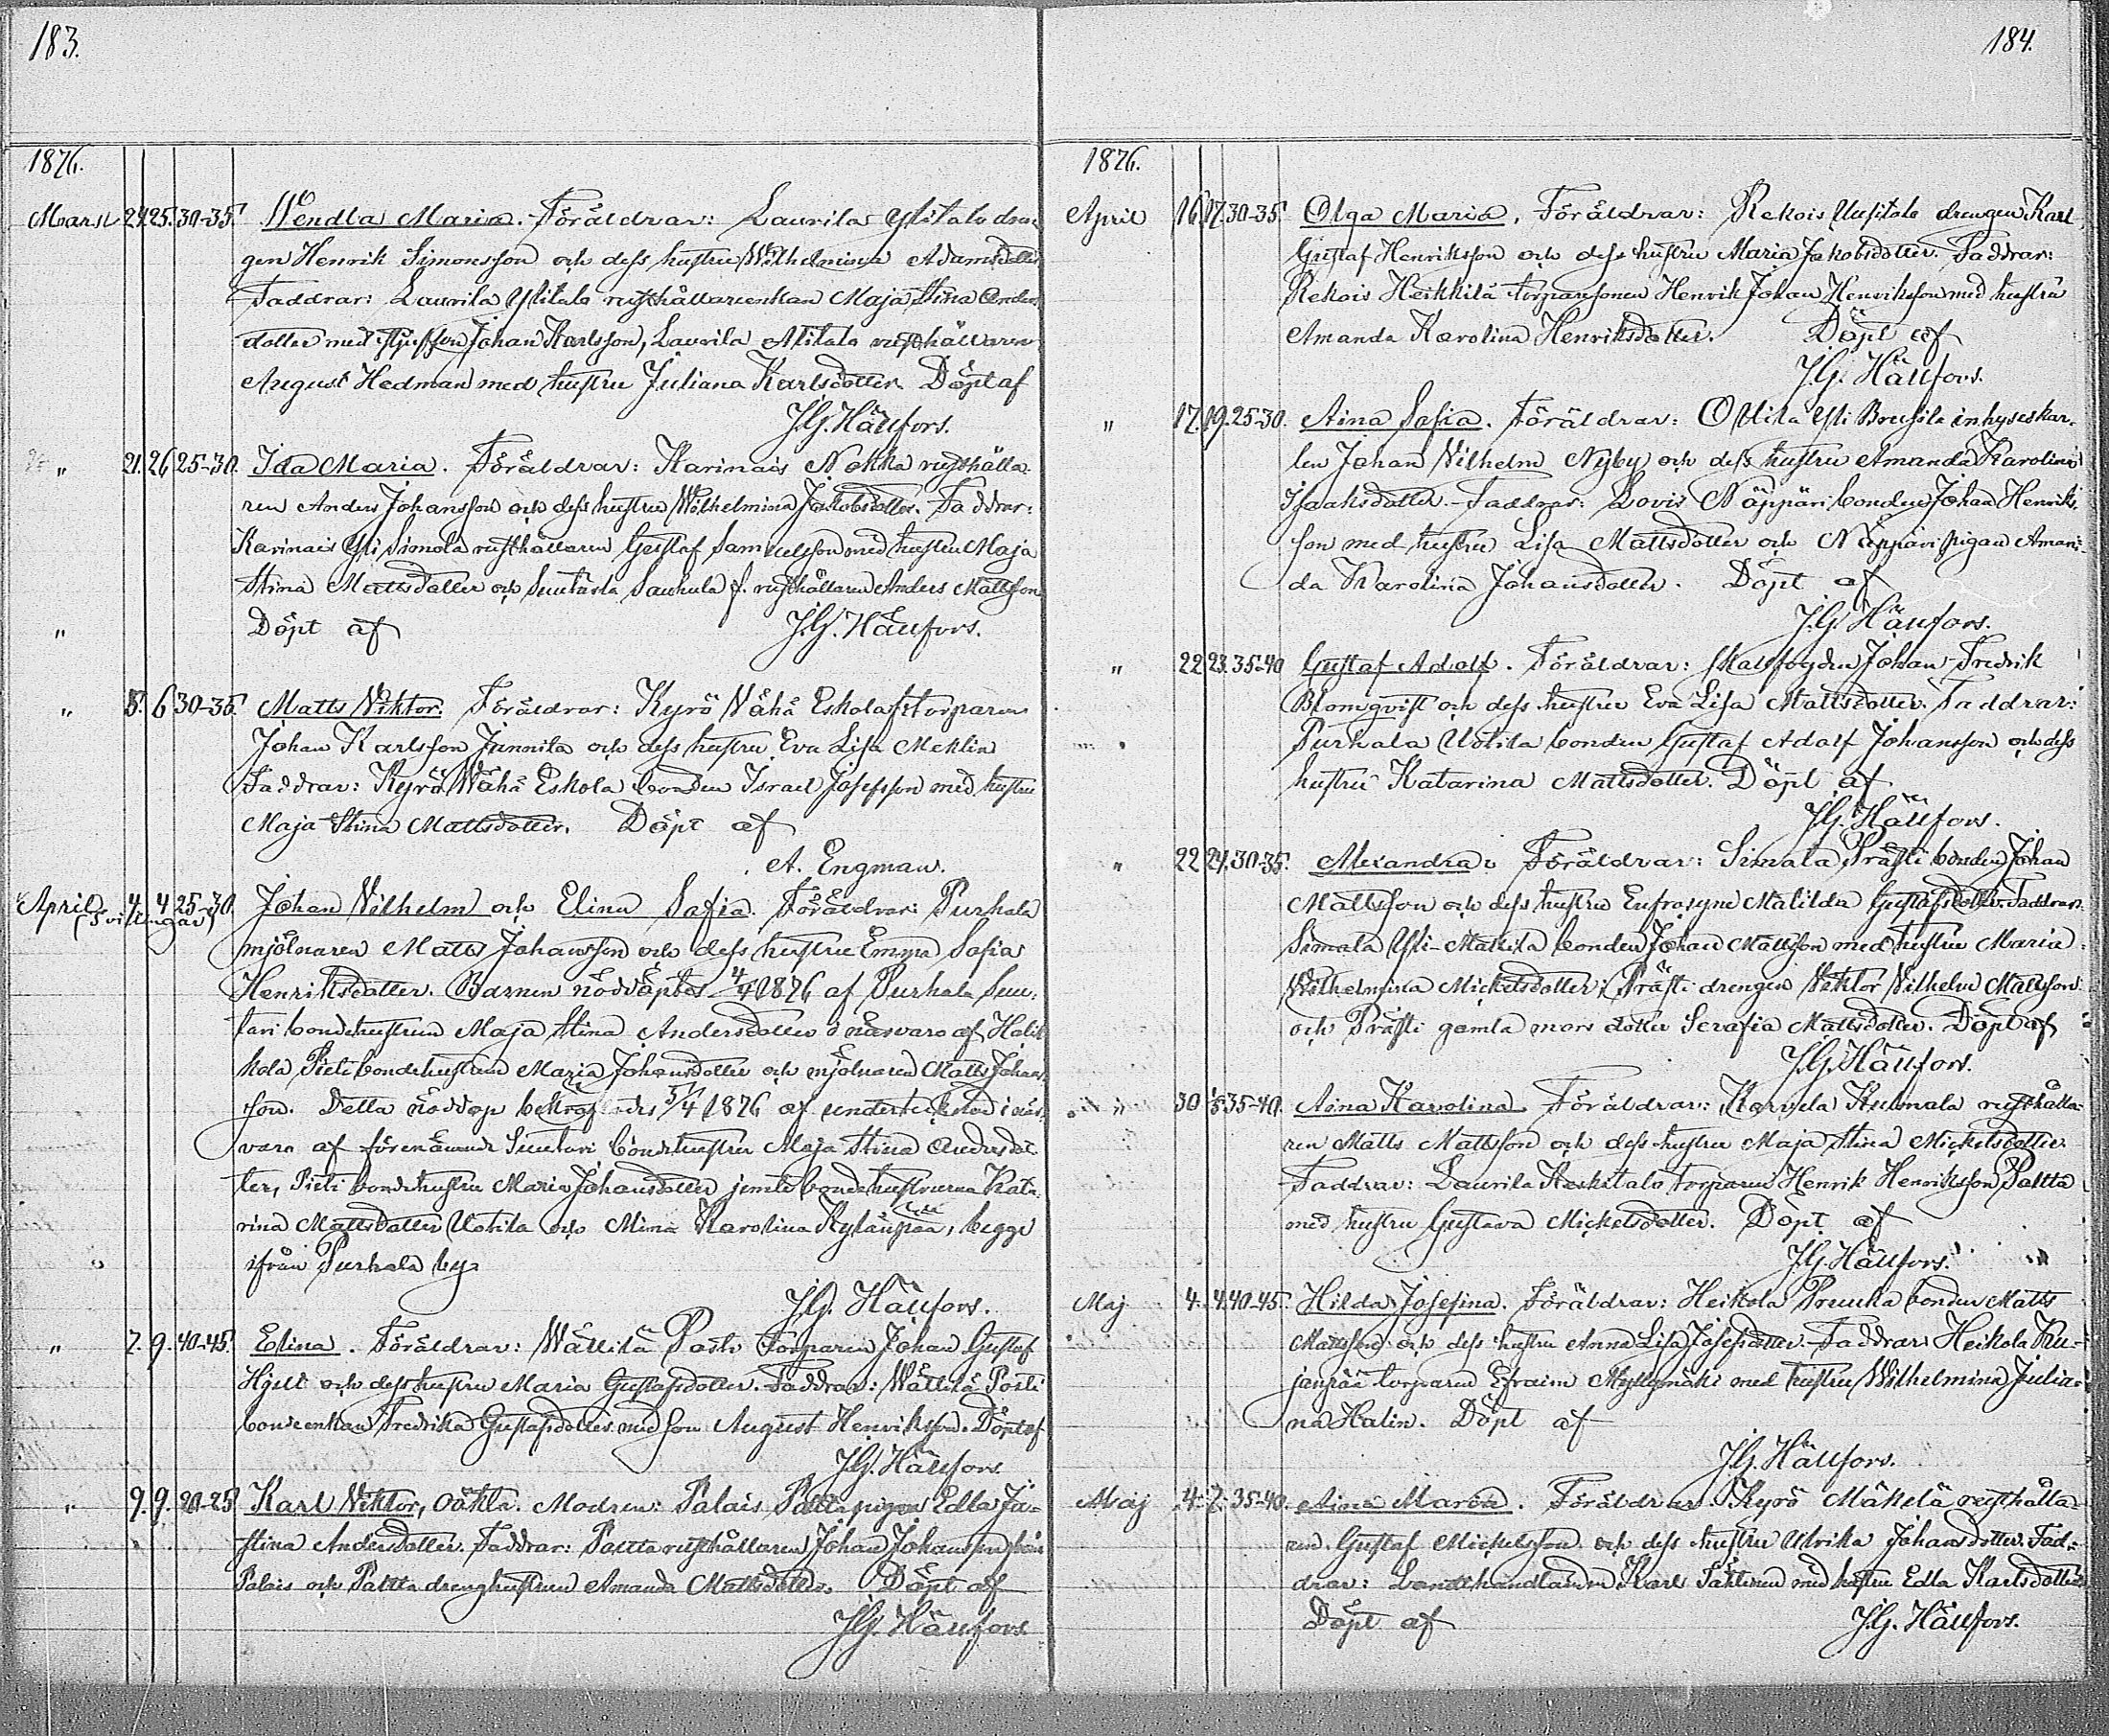 183.
1876.
Mars 24. 25. 30-35. Wendla Maria. Föräldrar: Laurila Ylitalo dren-
gen Henrik Simonsson och dess hustru Wilhelmina Adamsdotter
Faddrar: Laurila Ylitalo rusthållarenkan Maja Stina Anders
dotter med Johan Karlsson, Laurila Alitalo rusthållaren
August Hedman med hustru Juliana Karlsdotter. Döpt af
J.G. Hällfors.
" 21. 26 25-30. Ida Maria. Föräldrar: Karinais Nokka rusthålla-
ren Anders Johansson och dess hustru Wilhelmina Jakobsdotter. Faddrar:
Karinais Yli Simola rusthållaren Gustaf Samuelsson med hustru Maja
Stina Mattsdotter och Suutarla Sauhula f. rusthållaren Anders Mattsson
" Döpt af J.G. Hällfors.
" 5. 6 30-35. Matts Viktor. Föräldrar: Kyrö Vähä Eskola torparen
Johan Karlsson Junnila och dess hustru Eva Lisa Meklin
Faddrar: Kyrö Wähä Eskola bonden Israel Josefsson med hustru
Maja Stina Mattsdotter. Döpt af
A. Engman.
April 4. 4 25-30. Johan Vilhelm och Elina Sofia. Föräldrar: Purhala
(tvillingar)
mjölnaren Matts Johansson och dess hustru Emma Sofia
Henriksdotter. Barnen nöddöptes 4/4 1876 af Purhala Suu-
tari bondehustrun Maja Stina Andersdotter i närvaro af
Pieti bondehustrun Maria Johansdotter och mjölnaren Matts Johans-
son. Detta nöddop bekräftades 5/4 1876 af undertecknad i när-
varo af förenämnde Suutari bondehustru Maja Stina Andersdot-
ter, Pieti bondehustru Maria Johansdotter jemte bondehustrurna Kata-
rina Mattsdotter Uotila och Mina Karolina Kylänpää, begge
ifrån Purhala by.
J.G. Hällfors.
" 7. 9. 40-45. Elina. Föräldrar: Wällilä Posti torparen Johan Gustaf
Hjelt och dess hustru Maria Gustafsdotter. Faddrar: Wällilä Posti
bondeenkan Fredrika Gustafsdotter med son August Henriksson. Döpt af
J.G. Hällfors.
" 9. 9. 20-25. Karl Viktor, oäkta. Modren: Palais Paltta pigan Edla Ju-
stina Andersdotter. Faddrar: Paltta rusthållaren Johan Johansson från
Palais och Paltta dränghustrun Amanda Mattsdotter. Döpt af
J.G. Hällfors.
184.
1876.
April 16. 17. 30-35. Olga Maria. Föräldrar: Rekois Uusitalo drengen Karl
Gustaf Henriksson och dess hustru Maria Jakobsdotter. Faddrar:
Rekois Heikkilä torparesonen Henrik Johan Henriksson med hustru
Amanda Karolina Henriksdotter. Döpt af
J.G. Hällfors.
" 17. 19. 25-30. Aina Sofia. Föräldrar: Ollila Yli inhyseskar-
len Johan Vilhelm Nyby och dess hustru Amanda Karolina
Isaksdotter. Faddrar: Lovis Näppäri bonden Johan Henriks-
son med hustru Lisa Mattsdotter och Näppäri pigan Aman-
da Karolina Johansdotter. Döpt af
J.G. Hällfors.
" 22 23. 35-40 Gustaf Adolf. Föräldrar: Johan Fredrik
Blomqvist och dess hustru Eva Lisa Mattsdotter. Faddrar:
Purhala Uotila bonden Gustaf Adolf Johansson och dess
hustru Katarina Mattsdotter. Döpt af
J.G. Hällfors.
" 22 24. 30-35. Alexandra. Föräldrar: Simala Prästi bonden Johan
Mattsson och dess hustru Eufrosyne Matilda Gustafsdotter. Faddrar:
Simala Yli-Mattila bonden Johan Mattsson med hustru Maria
Wilhelmina Mickelsdotter; Prästi drengen Viktor Vilhelm Mattsson
och Prästi gamla mors dotter Serafia Mattsdotter. Döpt af
J.G. Hällfors.
" 30 35-40. Aina Karolina. Föräldrar: Karvela Kuumala rusthålla-
ren Matts Mattsson och dess hustru Maja Stina Mickelsdotter.
Faddrar: Laurila Keskitalo torparen Henrik Henriksson Paltta
med hustru Gustava Mickelsdotter. Döpt af
J.G. Hällfors.
Maj 4. 4. 40-45. Hilda Josefina. Föräldrar: Heikola Pruuka bonden Matts
Mattsson och dess hustru Anna Lisa Josefsdotter. Faddrar: Heikola Ku-
janpää torparen Efraim Myllymäki med hustru Wilhelmina Julia-
na Halin. Döpt af
J.G. Hällfors.
Maj 4. 7. 35-40. Aina Maria. Föräldrar: Kyrö Mäkelä rusthålla-
ren Gustaf Mickelsson och dess hustru Ulrika Johansdotter. Fad-
drar: Landthandlaren Karl med hustru Edla Karlsdotter
Döpt af J.G. Hällfors.